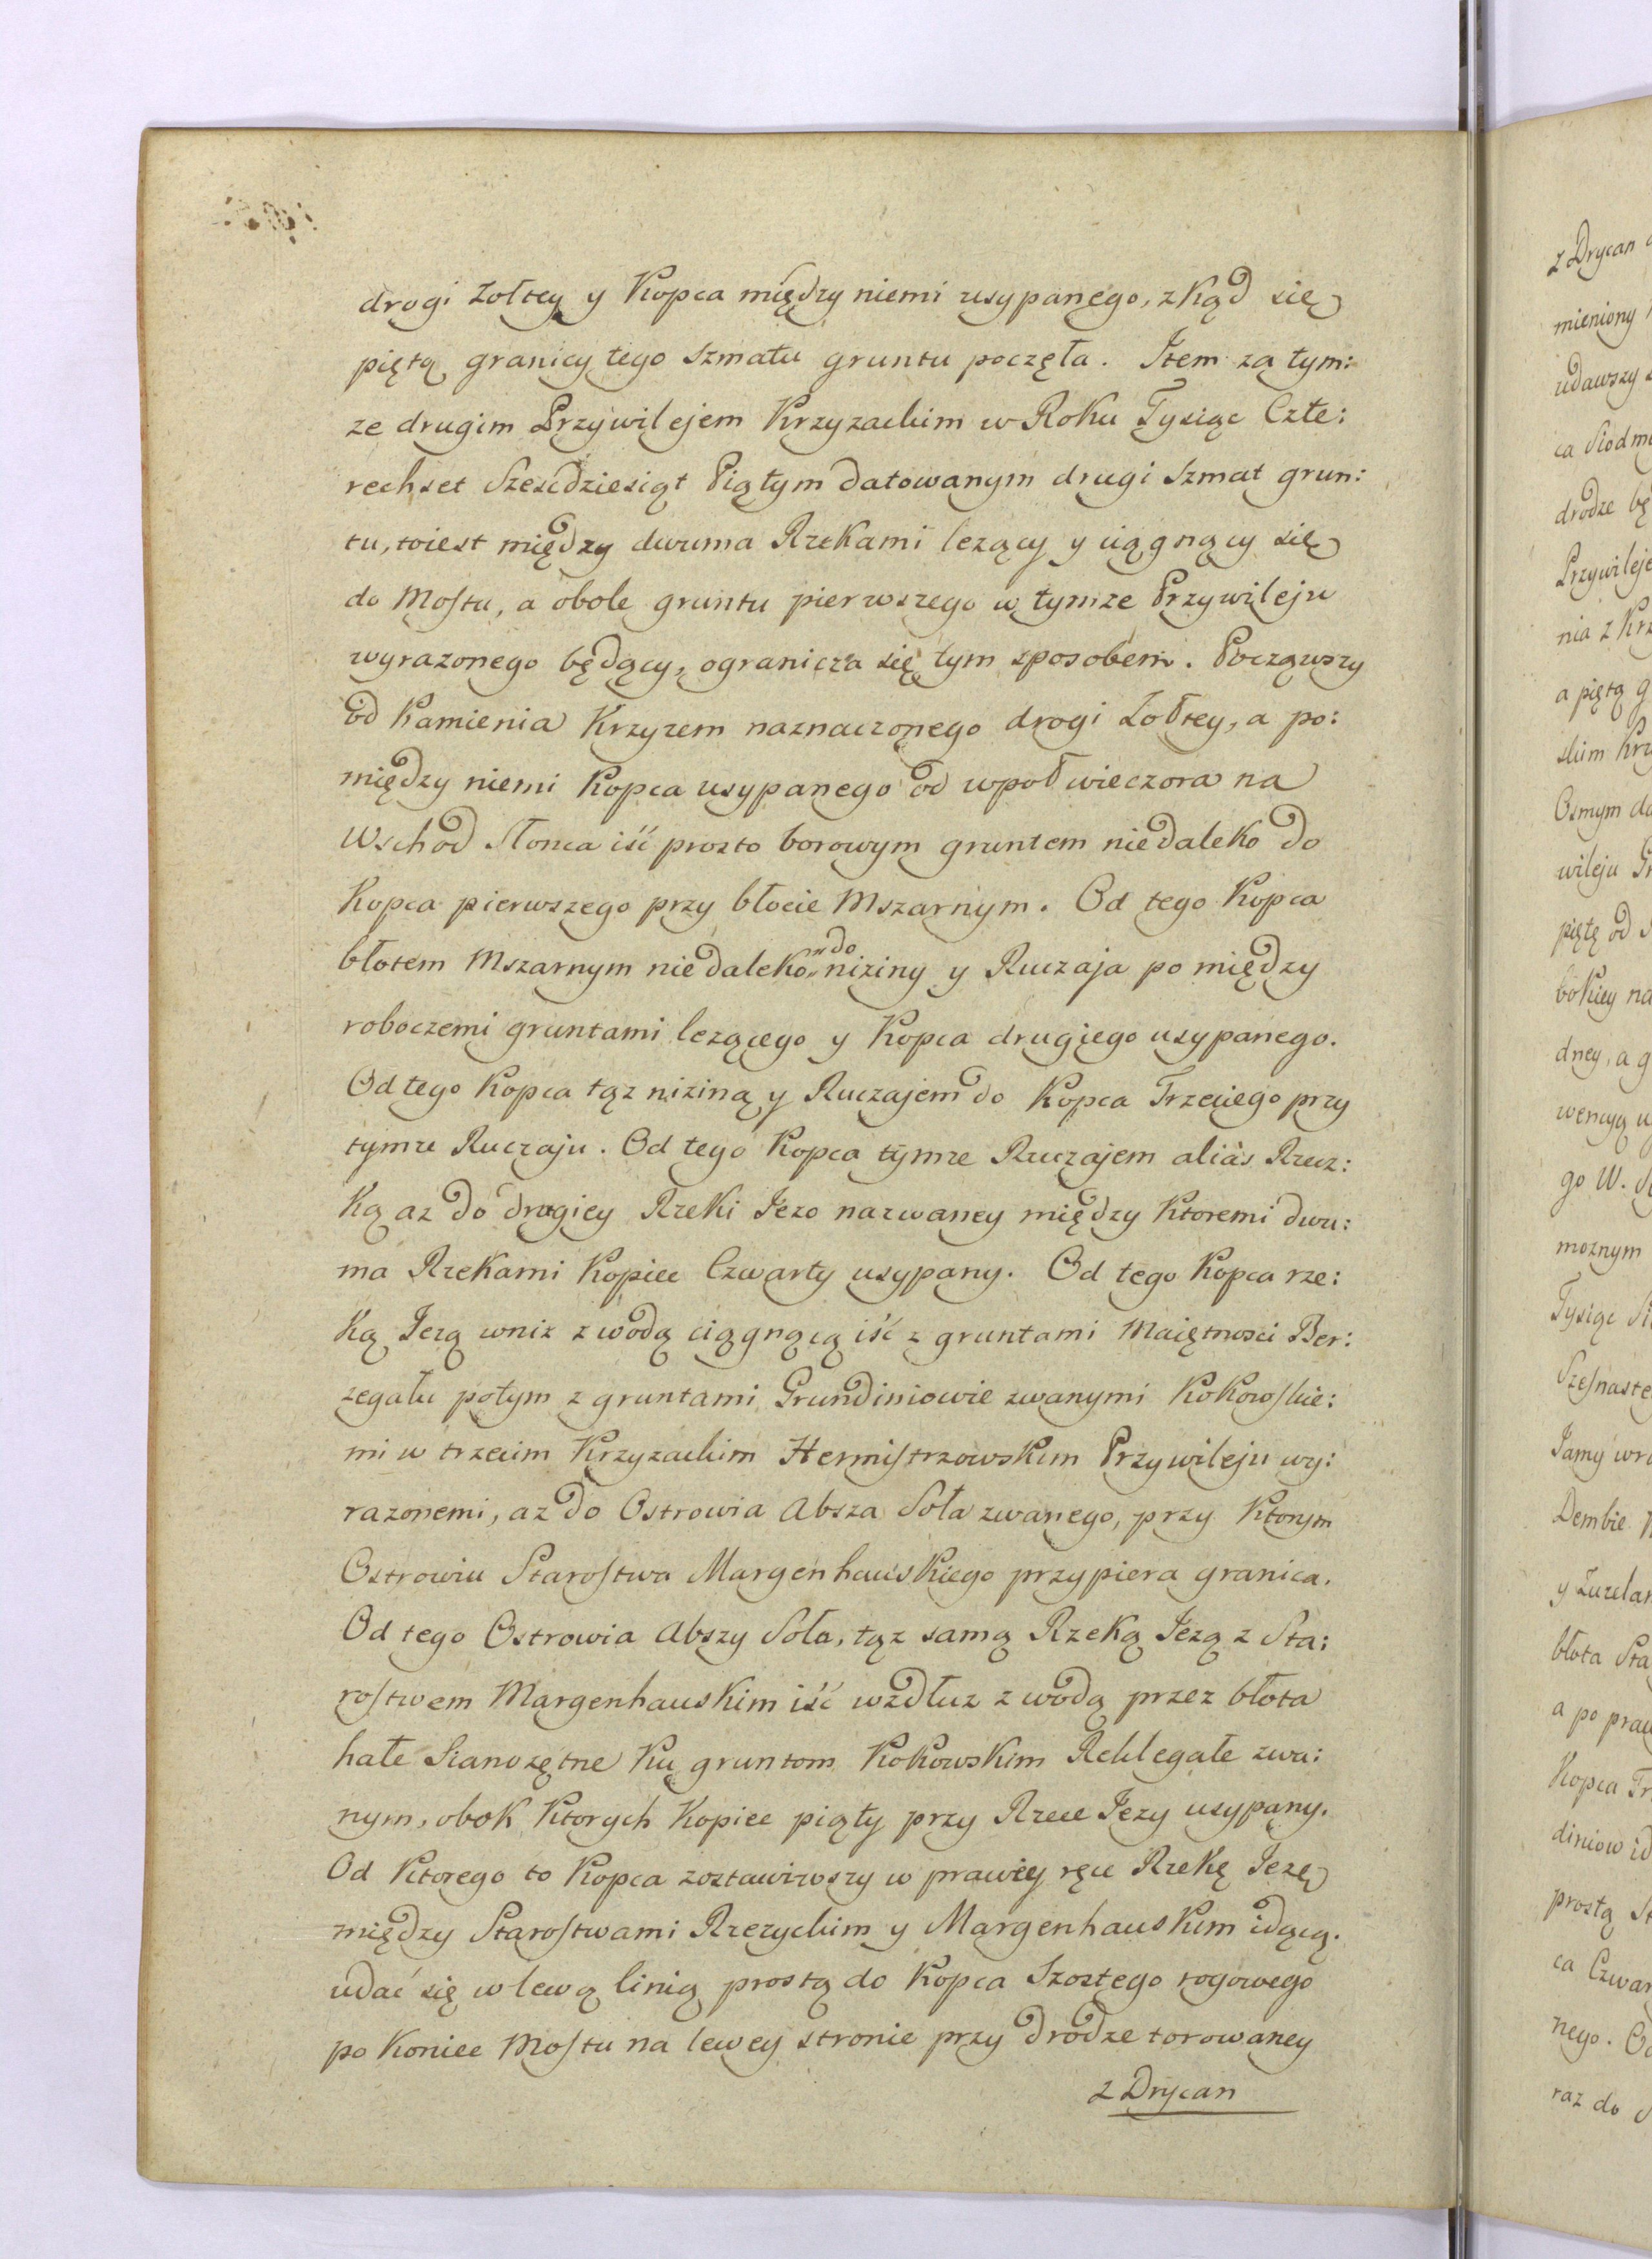 drogi Zołtey y Kopca między niemi usypanego, zkąd się
piętą granicy tego szmatu gruntu poczęła. Item za tym:
ze drugim Przywilejem Krzyzackim w Roku Tysiąc Czte:
rechset Szescdziesiąt Piątym datowanym drugi Szmat grun:
tu, toiest między dwuma Rzekami lezący y ciągnący się
do Mostu, a obole gruntu pierwszego w tymze Przywileju
wyrazonego będący, ogranicza się tym sposobem. Począwszy
od Kamienia Krzyzem naznaczonego drogi Zołtey, a po:
między niemi Kopca usypanego od wpoł wieczora na
Wschod Słonca iść prosto borowym gruntem niedaleko do
Kopca pierwszego przy błocie Mszarnym. Od tego Kopca
błotem Mszarnym niedaleko do niziny y Ruczaja po między
roboczemi gruntami lezącego y Kopca drugiego usypanego.
Od tego Kopca tąz niziną y Ruczajem do Kopca Trzeciego przy
tymze Ruczaju. Od tego Kopca tymze Ruczajem alias Rzecz:
Ką az do drugiey Rzeki Jezo nazwaney między Ktoremi dwu:
ma Rzekami Kopiec Czwarty usypany. Od tego Kopca rze:
Ką Jezą wniz z wodą ciągnącą iść z gruntami Maiętnosci Ber:
zegału potym z gruntami Grundiniowie zwanymi Kokowskie:
mi w trzecim Krzyzackim Hermistrzowskim Przywileju wy:
razonemi, az do Ostrowia Absza Soła zwanego, przy Ktorym
Ostrowiu Starostwa Margenhauskiego przypiera granica.
Od tego Ostrowia Abszy Soła, tąz samą Rzeką Jezą z Sta:
rostwem Margenhauskim iść wzdłuz z wodą przez błota
hałe Sianozętne Ku gruntom Kokowskim Reklegałe zwa:
nym, obok Ktorych Kopiec piąty przy Rzece Jezy usypany.
Od Ktorego to Kopca zostawiwszy w prawey ręce Rzekę Jezę
między Starostwami Rzezyckim y Margenhauskim idącą.
udać się w lewą linią prostą do Kopca Szostego rogowego
po Koniec Mostu na lewey stronie przy drodze torowaney
z Drycan
z Drycan
mieniony
udawszy
ca Siodm
drodze bę
Przywileje
nia z Krz
a piętą g
skim Krz
Osmym da
wileju
piętę od
bokiey na
dney, a g
wencyą
go W.
moznym
Tysiąc
Szesnaste
Jamy
Dembie
y Luzelan
błota Sta
a po praw
Kopca Tr
diniow id
prostą st
ca Czwar
nego.
raz do